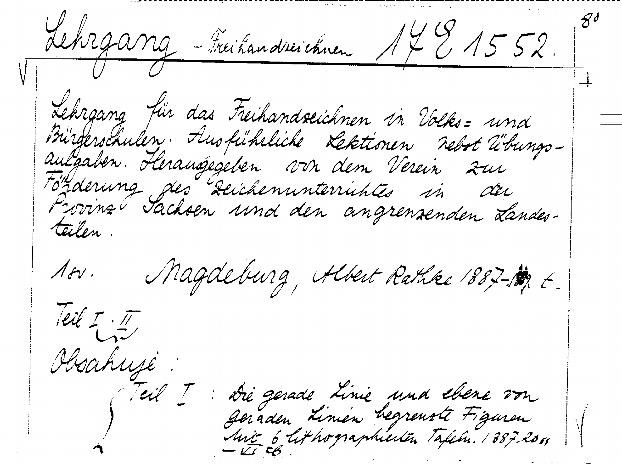 Lehrgang - Freihandzeichnen 17 E 1552.
8°
Lehrgang für das Freihandzeichnen in Volks= und
Bürgerschulen. Ausführliche Lektionen nebst Übungs-
aufgaben. Herausgegeben von dem Verein zur
Förderung des Zeichenunterrichtes in der
Provinz Sachsen und den angrenzenden Landes-
teilen.
1 sv. Magdeburg, Albert Rathke 1887- t.
Teil I - II
Obsahuje :
Teil I : Die gerade Linie und ebene von
geraden Linien begrenzte Figuren
Mit 6 lithographierten Tafeln. 1887.